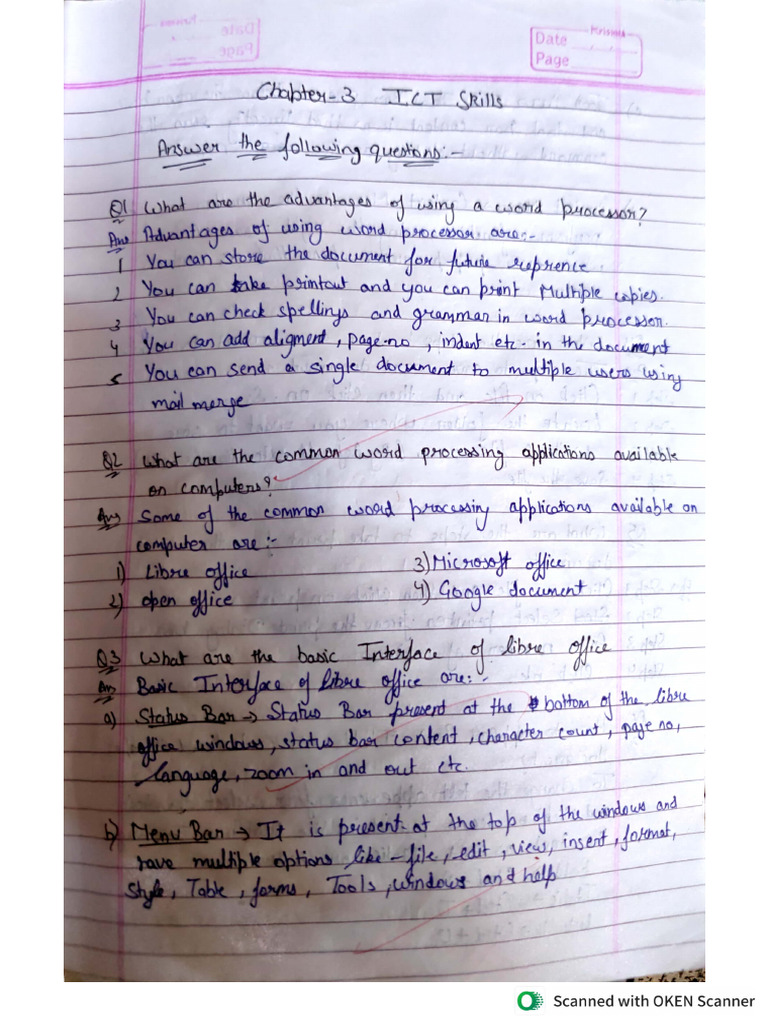 Date
Page
Chapter-3 ICT Skills
Answer the following questions:-
Q1 What are the advantages of using a word processor?
Ans Advantages of using word processor are:-
1 You can store the document for future reprence
2 You can take printout and you can print Multiple copies.
3 You can check spellings and grammar in word processor.
4 You can add aligment, page-no, indent etc. in the document
5 You can send a single document to multiple users using
mail merge
Q2 What are the common word processing applications available
on computers?
Ans Some of the common word processing applications available on
computer are:-
1) Libre office 3) Microsoft office
2) open office 4) Google document
Q3 What are the basic Interface of libre office
Ans Basic Interface of libre office are:-
a) Status Bar → Status Bar present at the bottom of the libre
office windows, status bar content, character count, page no,
language, zoom in and out etc.
b) Menu Bar → It is present at the top of the windows and
have multiple options like - file, edit, view, insert, format,
Style, Table, forms, Tools, windows and help
Scanned with OKEN Scanner